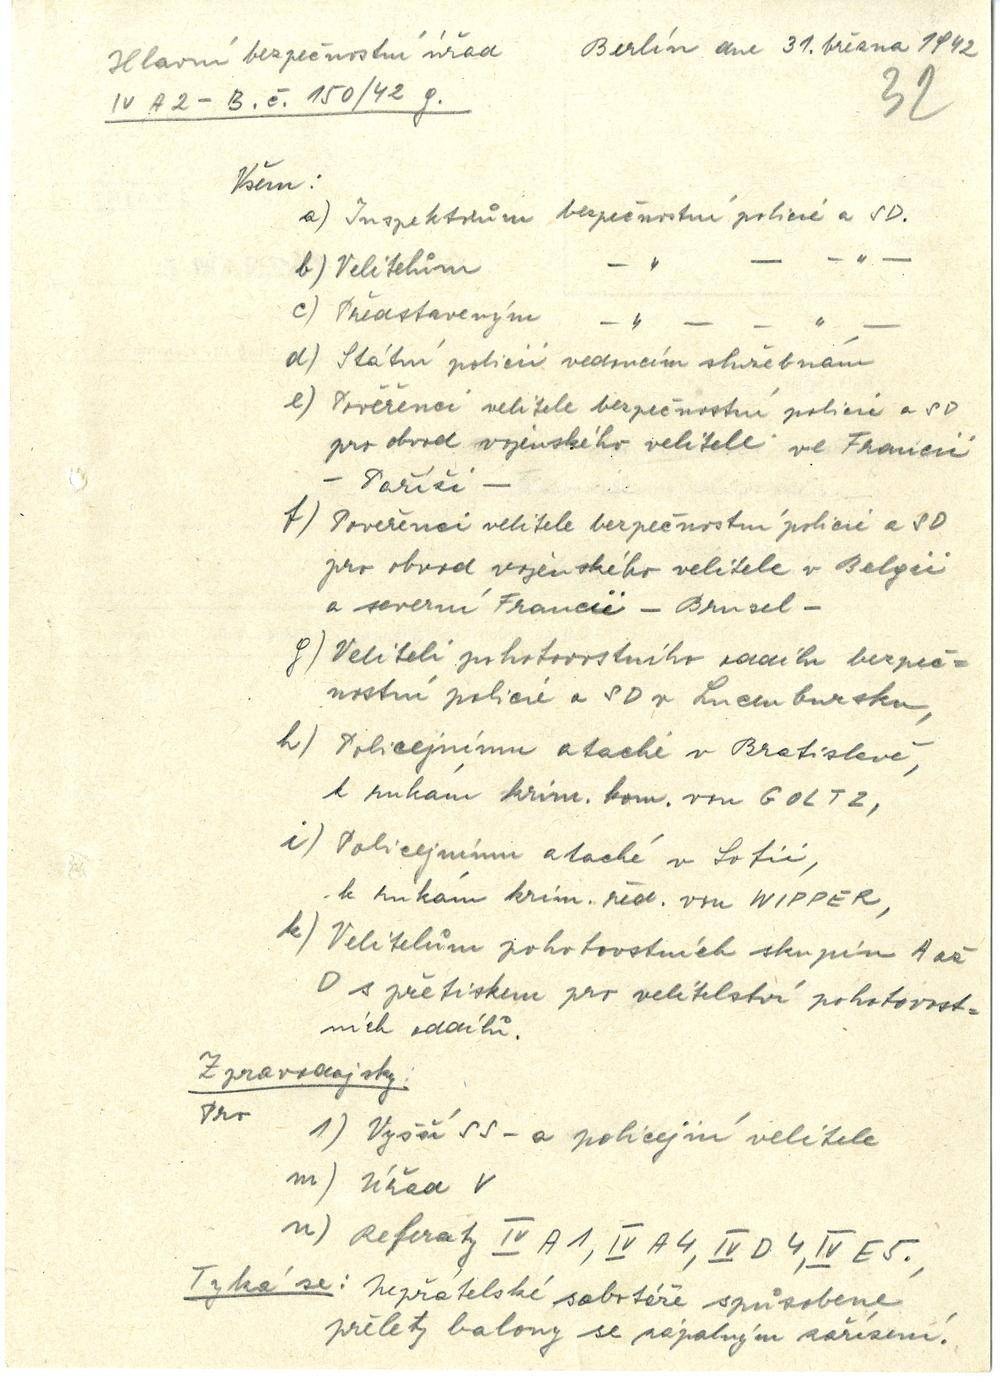 Hlavní bezpečnostní úřad Berlín dne 31. března 1942
32
IV A 2 – B. č. 150/42 g.
Všem:
a) Inspektorům bezpečnostní policie a SD.
b) Velitelům – " — – " —
c) Představeným – " — – " —
d) Státní policií vedoucím služebnám
e) Pověřenci velitele bezpečnostní policie a SD
pro obvod vojenského velitele ve Francii
– Paříži –
f) Pověřenci velitele bezpečnostní policie a SD
pro obvod vojenského velitele v Belgii
a severní Francii – Brusel –
g) Veliteli pohotovostního oddílu bezpeč=
nostní policie a SD v Lucembursku,
h) Policejnímu ataché v Bratislavě,
k rukám krim. kom. von GOLTZ,
i) Policejnímu ataché v Sofii,
k rukám krim. řed. von WIPPER,
k) Velitelům pohotovstních skupin A až
D s přetiskem pro velitelství pohotovost=
ních oddílů.
Zpravodajsky:
Pro 1) Vyšší SS – a policejní velitele
m) Úřad V
n) Referáty IV A 1, IV A 4, IV D 4, IV E 5.,
Týká se: Nepřátelské sabotáže způsobené
přelety balony se zápalným zařízení.